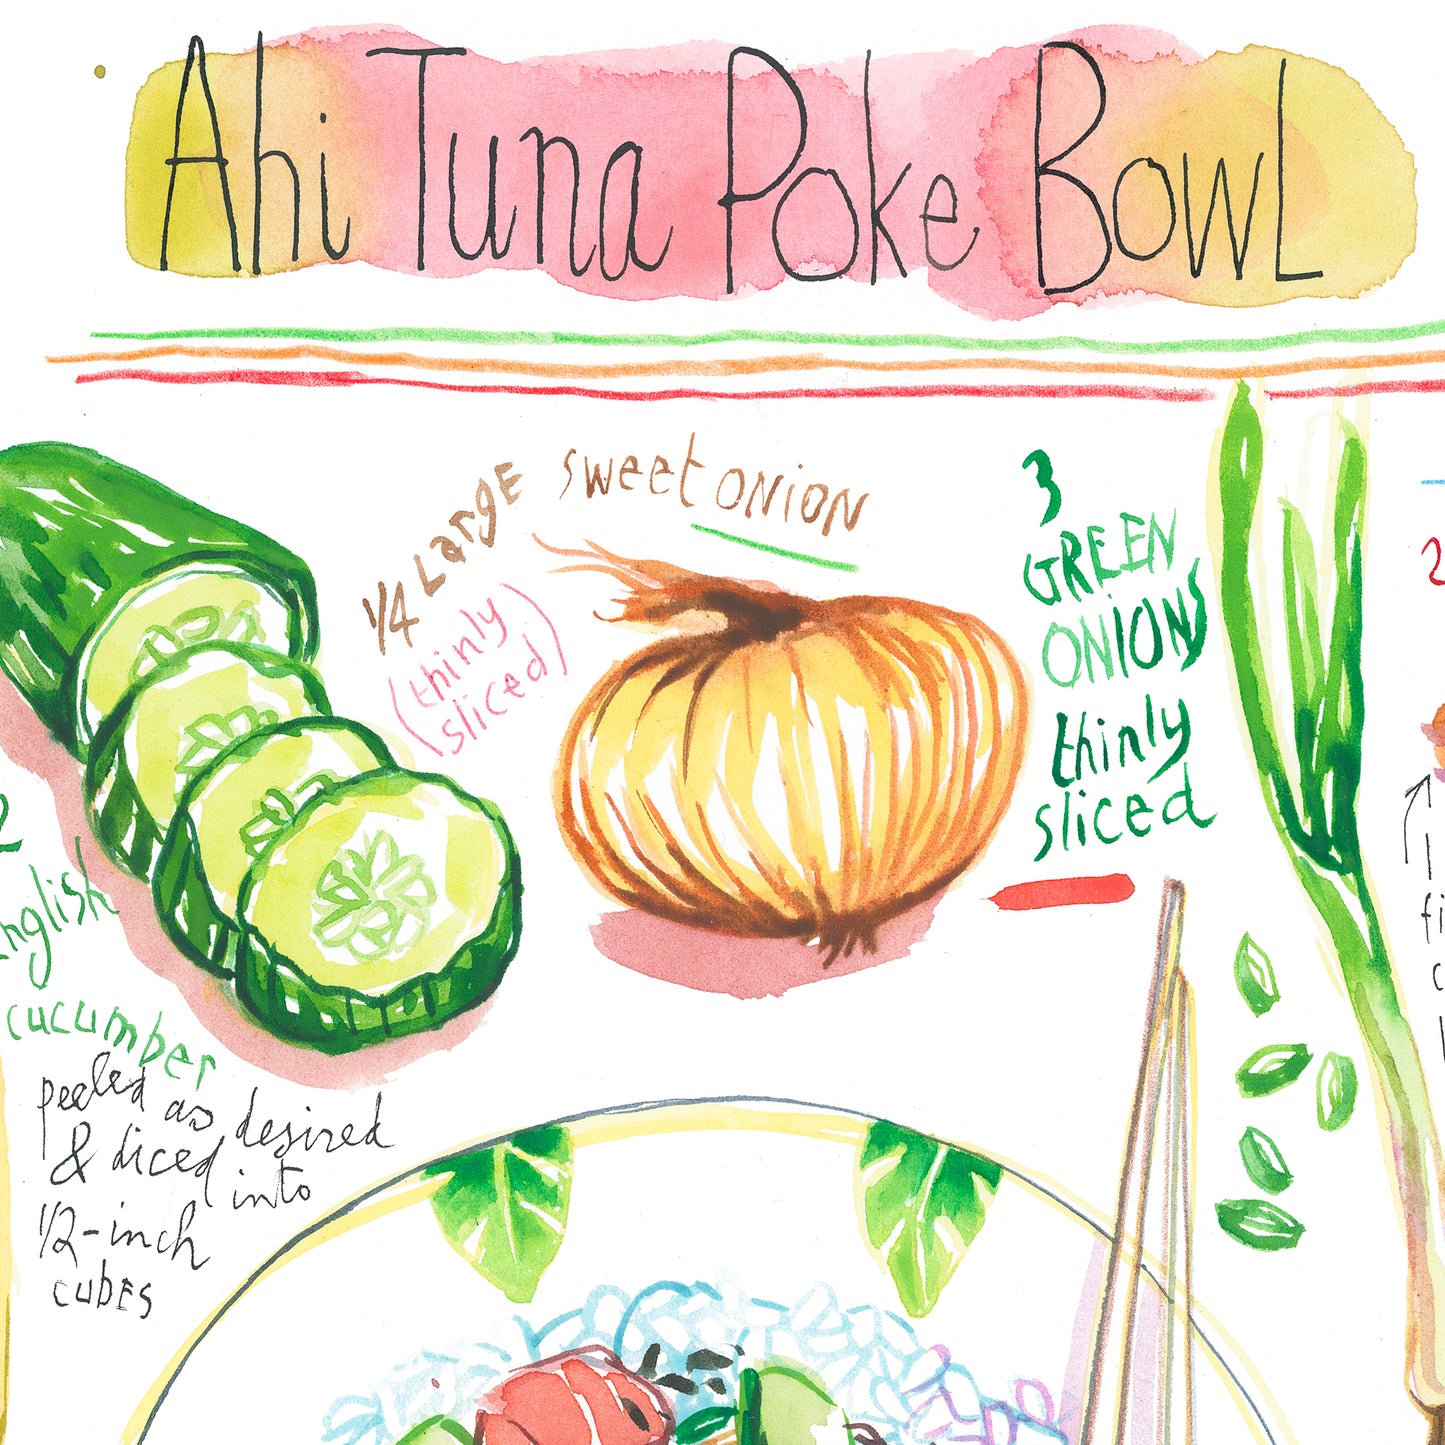 Ahi Tuna Poke BowL
1/4 LargE sweet ONiON
(thinly
sliced)
3
GREEN
ONIONS
thinly
sliced
2
English
cucumber
peeled as desired
& diced into
1/2-inch
cubes
2